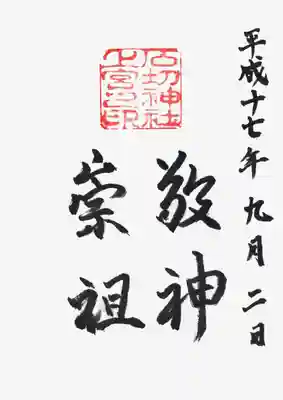 平成十七年九月二日
敬神
崇祖
石切神社
上宮之印